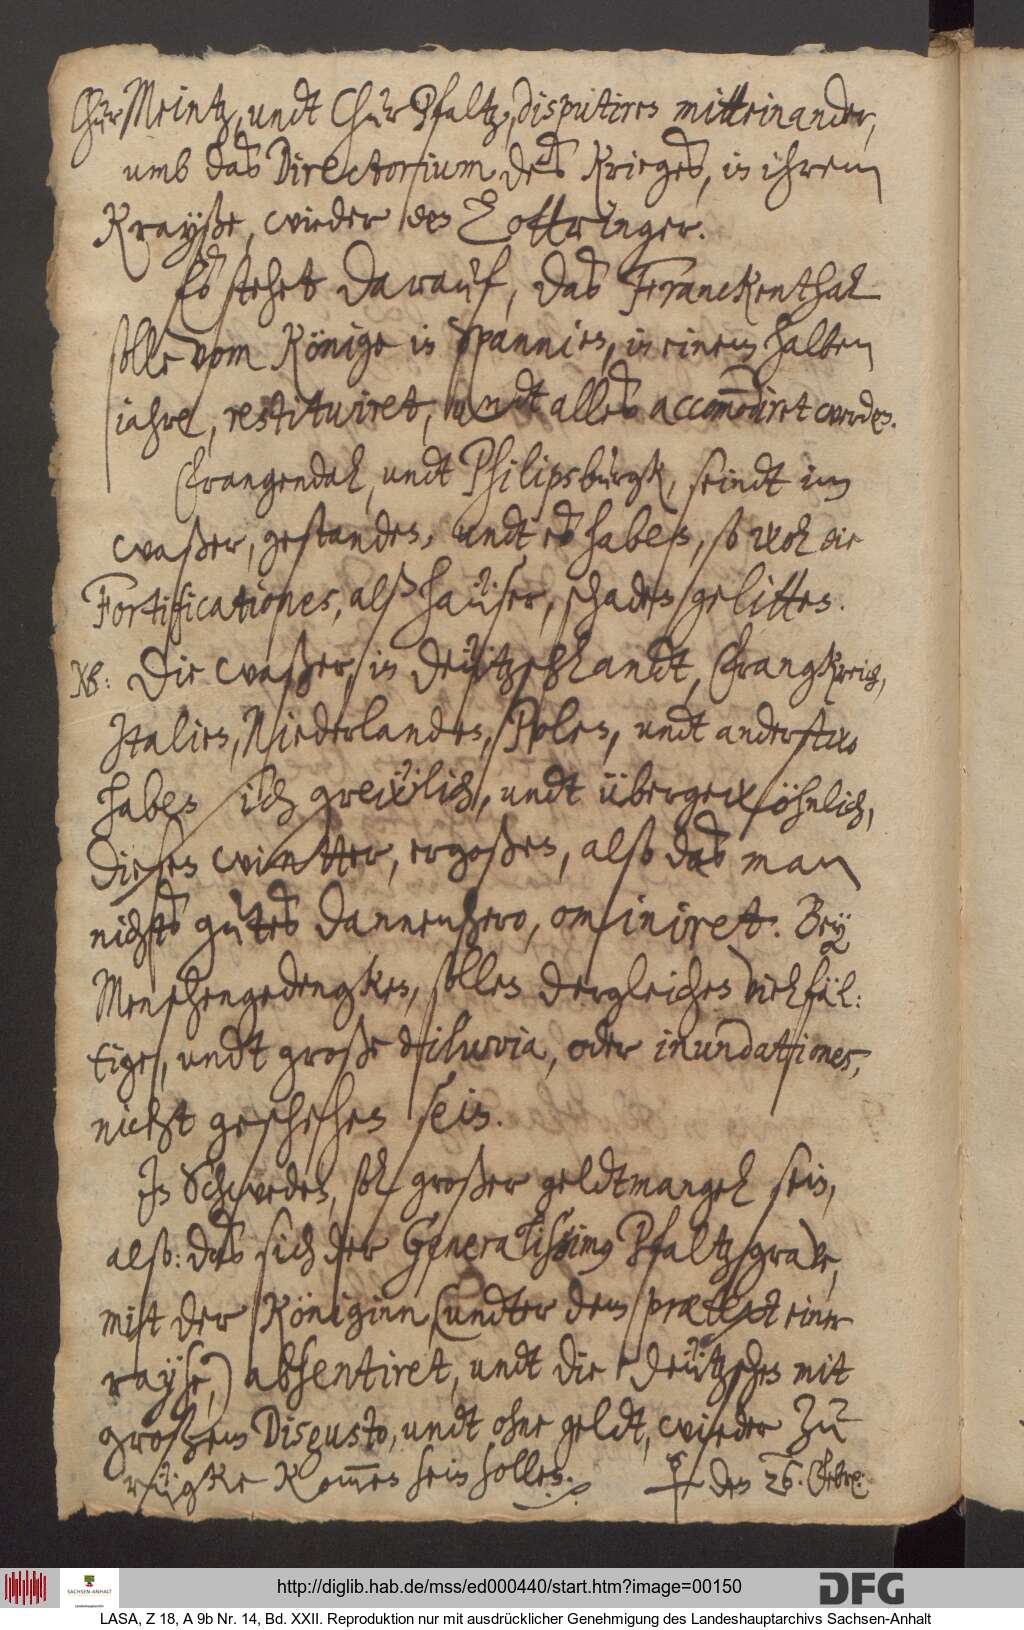 Chur Meintz, undt Chur Pfaltz, disputiren mitteinander,
umb das Directorium des Krieges, in ihrem
Krayße, wieder den Lottringer.
Es stehet darauf, das Franckenthal
solle vom Könige in Spannien, in einem halben
jahre, restituiret, undt alles accommodiret werden.
Frangendal, undt Philipsburgk, seindt im
waßer, gestanden, undt es haben, so wol die
Fortificationes, alß haüser, schaden gelitten.
NB: Die waßer, in Deützschlandt, Frangkreich,
Italien, Niederlanden, Polen, undt anderstwo
haben sich greẅlich, undt übergewöhnlich,
diesen wintter, ergoßen, also das man
nichts gutes dannenhero, ominiret. Bey
Menschengedengken, sollen dergleichen vielfäl:
tige, undt große diluvia, oder inundationes,
nicht geschehen sein.
In Schweden, sol großer geldtmangel sein,
also: das sich der Generalissimus Pfaltzgrave,
mit der Königinn (undter dem prætext einer
rayse,) absentiret, undt die Deützschen mit
großem Disgusto, undt ohne geldt, wieder zu
rügke kommen sein sollen. den 26. Febr:
http://diglib.hab.de/mss/ed000440/start.htm?image=00150
SACHSEN-ANHALT
DFG
LASA, Z 18, A 9b Nr. 14, Bd. XXII. Reproduktion nur mit ausdrücklicher Genehmigung des Landeshauptarchivs Sachsen-Anhalt